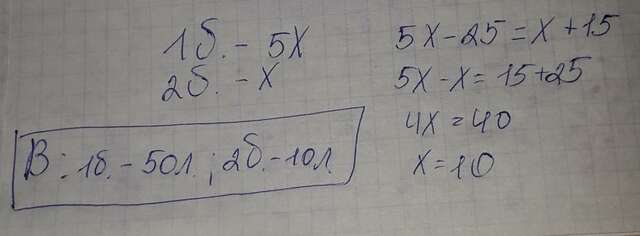 1б. - 5x
2б. - x
В: 1б. - 50л.; 2б. - 10л.
5x - 25 = x + 15
5x - x = 15 + 25
4x = 40
x = 10